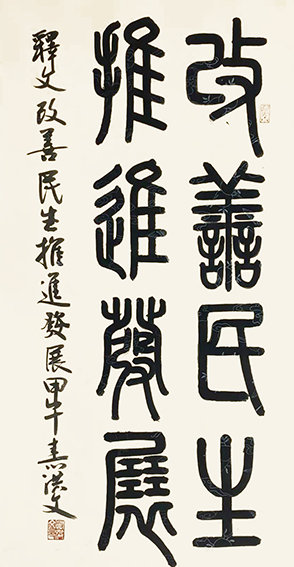 改善民生
推進發展
釋文改善民生推進發展甲午